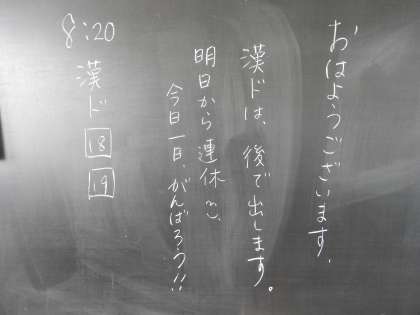 おはようございます.
漢ドは、後で出します。
明日から連休♪、
今日一日、がんばろう!!
8:20
漢ド
18
19